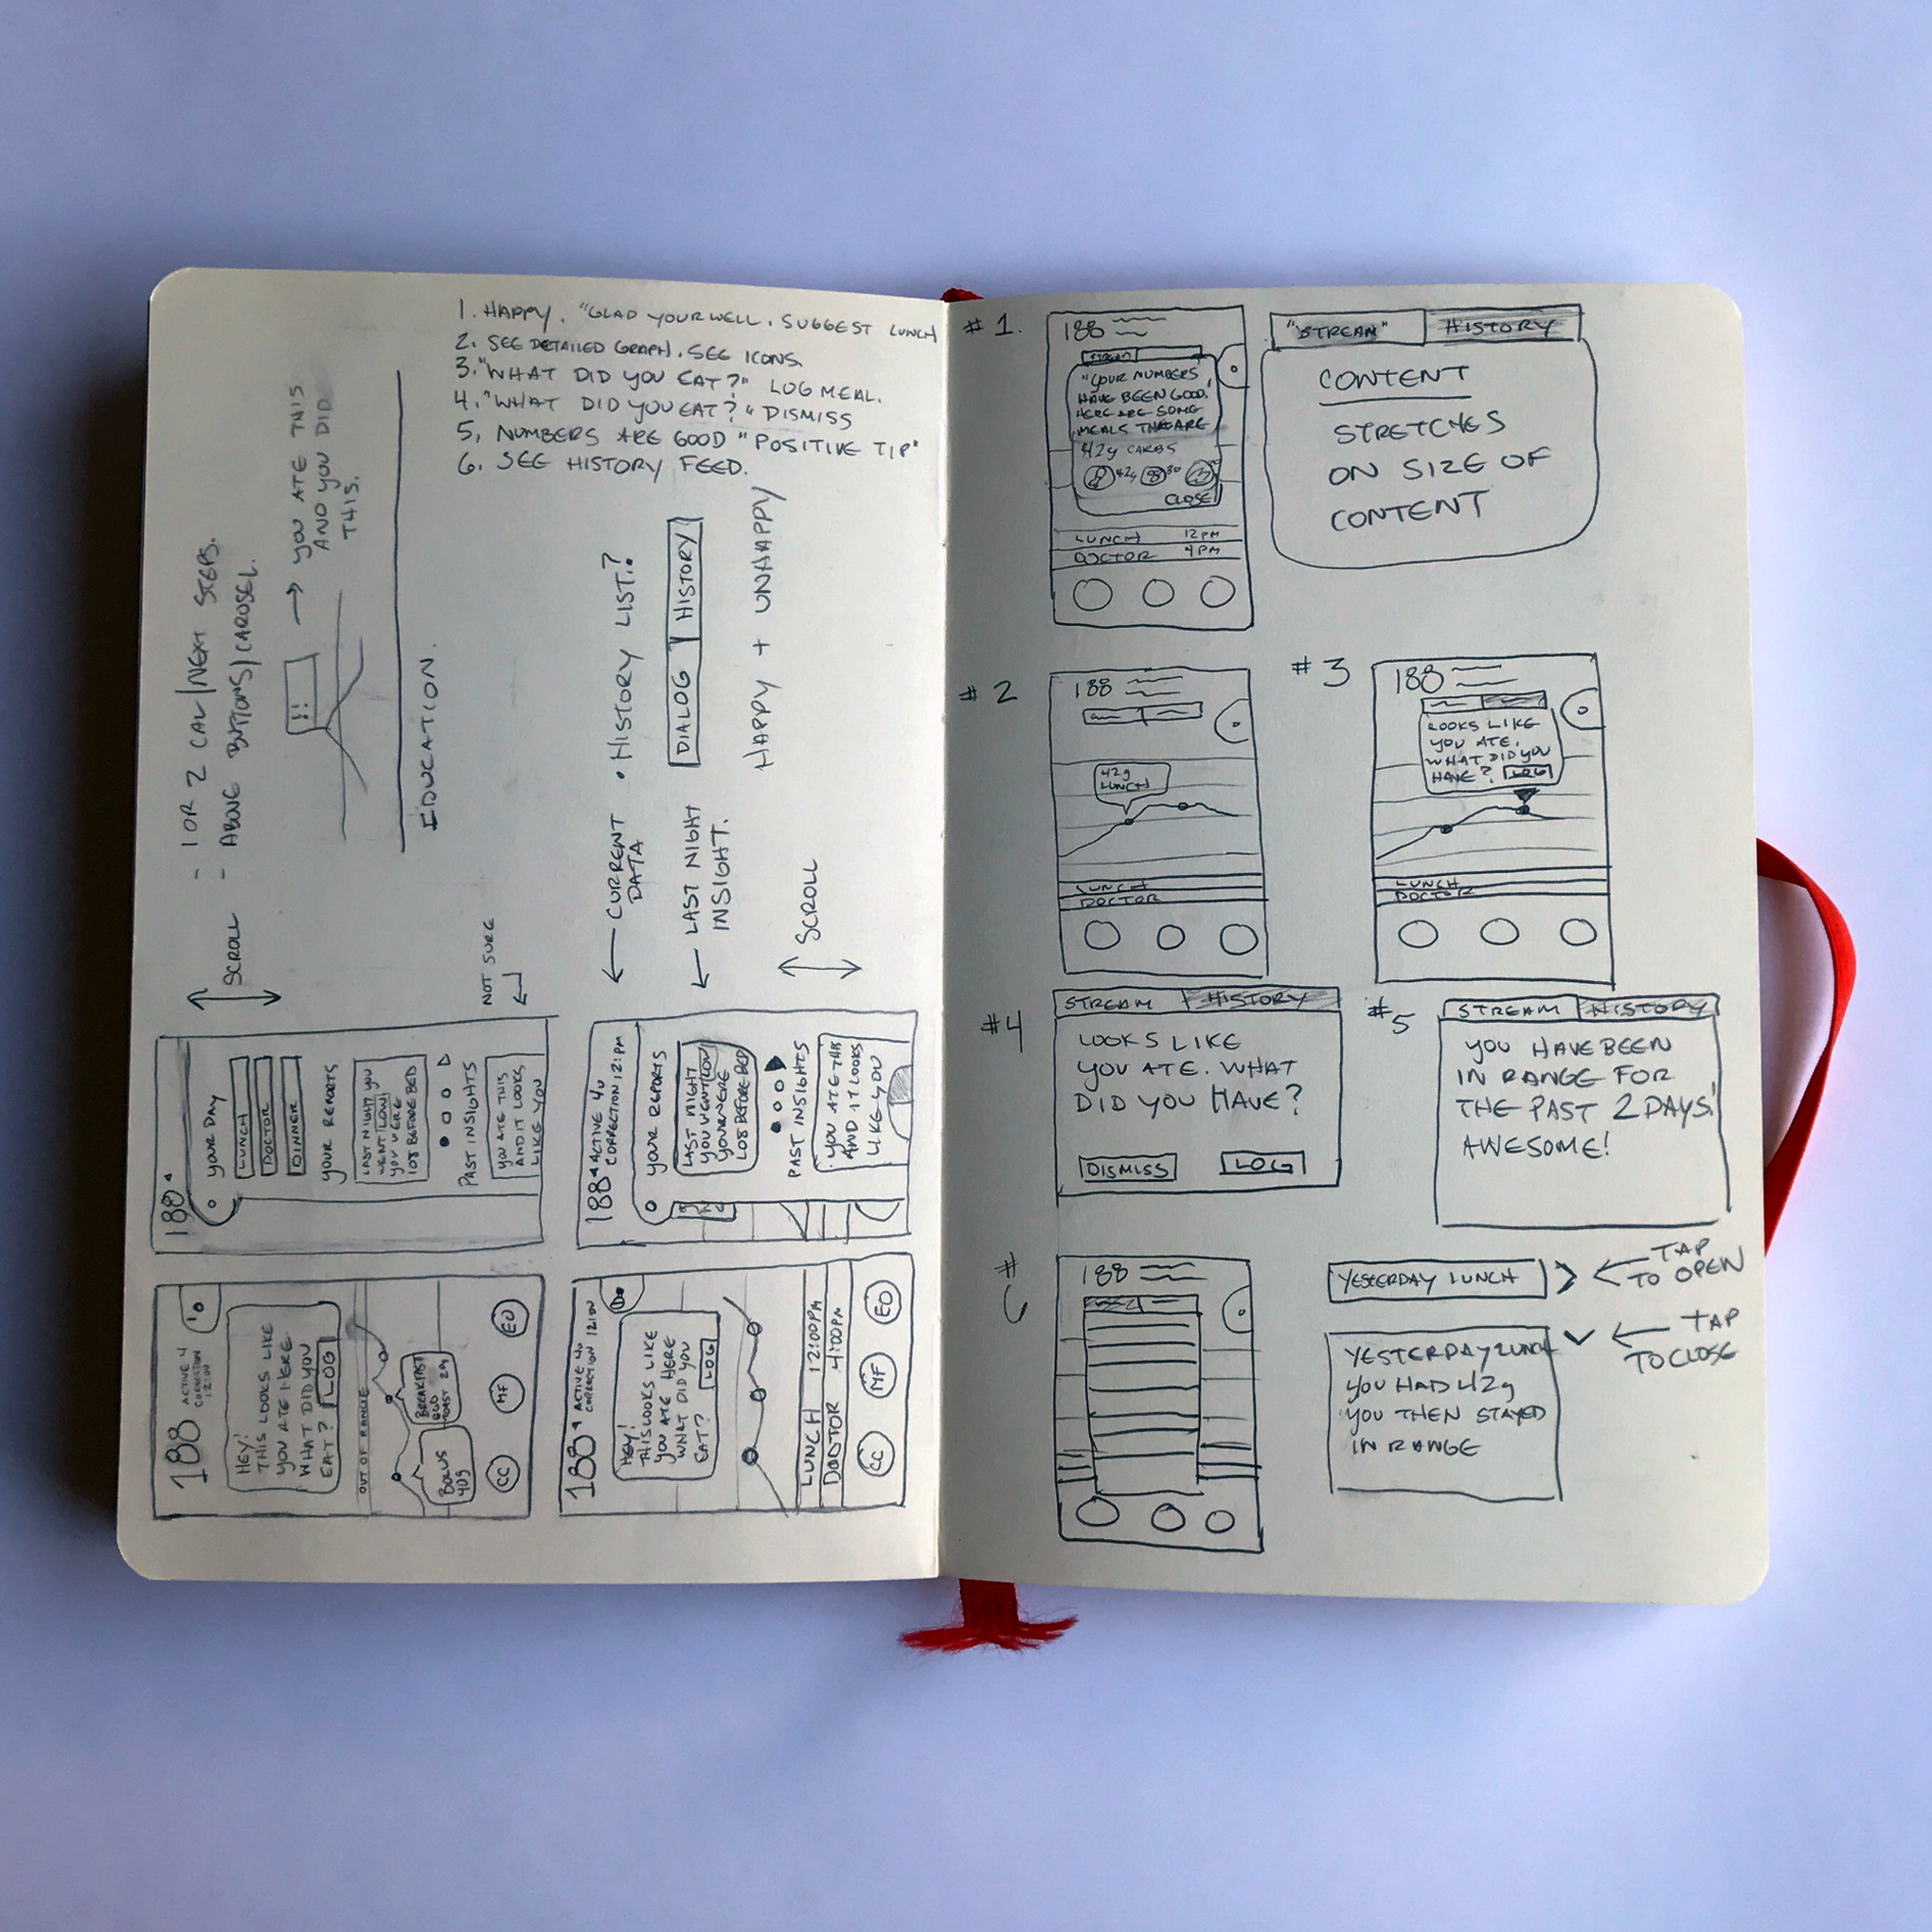 1. HAPPY. "GLAD YOUR WELL. SUGGEST LUNCH
2. SEE DETAILED GRAPH. SEE ICONS.
3. "WHAT DID YOU EAT?" LOG MEAL.
4. "WHAT DID YOU EAT?" DISMISS
5. NUMBERS ARE GOOD "POSITIVE TIP"
6. SEE HISTORY FEED.
- 1 OR 2 CAL/NEXT STEPS.
- ABOVE BUTTONS/CAROSEL.
SCROLL
!!
YOU ATE THIS
AND YOU DID
THIS.
EDUCATION.
NOT SURE
188
YOUR DAY
LUNCH
DOCTOR
DINNER
YOUR REPORTS
LAST NIGHT YOU
WENT LOW
YOU WERE
108 BEFORE BED
PAST INSIGHTS
YOU ATE THIS
AND IT LOOKS
LIKE YOU
188
ACTIVE 4
CORRECTION
12:00
HEY!
THIS LOOKS LIKE
YOU ATE HERE
WHAT DID YOU
EAT? LOG
OUT OF RANGE
BOLUS
40g
BREAKFAST
EGG
TOAST 29g
CC MF EO
CURRENT
DATA
• HISTORY LIST?
LAST NIGHT
INSIGHT.
DIALOG HISTORY
HAPPY + UNHAPPY
SCROLL
188 ACTIVE 4U
CORRECTION 12:1PM
YOUR REPORTS
LAST NIGHT
YOU WENT LOW
YOU WERE
108 BEFORE BED
PAST INSIGHTS
YOU ATE THIS
AND IT LOOKS
LIKE YOU
188 ACTIVE 4U
CORRECTION 12:00
HEY!
THIS LOOKS LIKE
YOU ATE HERE
WHAT DID YOU
EAT? LOG
LUNCH 12:00PM
DOCTOR 4:00PM
CC MF EO
#1.
188
STREAM
"YOUR NUMBERS
HAVE BEEN GOOD!
HERE ARE SOME
MEALS THAT ARE
42g CARBS
CLOSE
LUNCH 12PM
DOCTOR 4PM
"STREAM" HISTORY
CONTENT
STRETCHES
ON SIZE OF
CONTENT
#2
188
42g
LUNCH
LUNCH
DOCTOR
#3
188
LOOKS LIKE
YOU ATE.
WHAT DID YOU
HAVE? LOG
LUNCH
DOCTOR
#4
STREAM HISTORY
LOOKS LIKE
YOU ATE. WHAT
DID YOU HAVE?
DISMISS LOG
#5
STREAM HISTORY
YOU HAVE BEEN
IN RANGE FOR
THE PAST 2 DAYS!
AWESOME!
#6
188
YESTERDAY LUNCH >
TAP
TO OPEN
YESTERDAY LUNCH
YOU HAD 42g
YOU THEN STAYED
IN RANGE
TAP
TO CLOSE